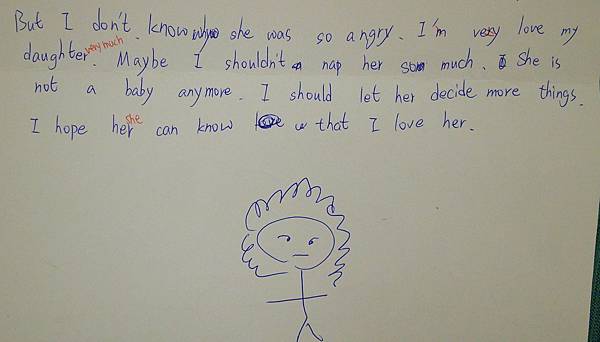 But I don't know why she was so angry. I'm very love my
daughter very much. Maybe I shouldn't nap her so much. She is
not a baby anymore. I should let her decide more things.
I hope her she can know that I love her.